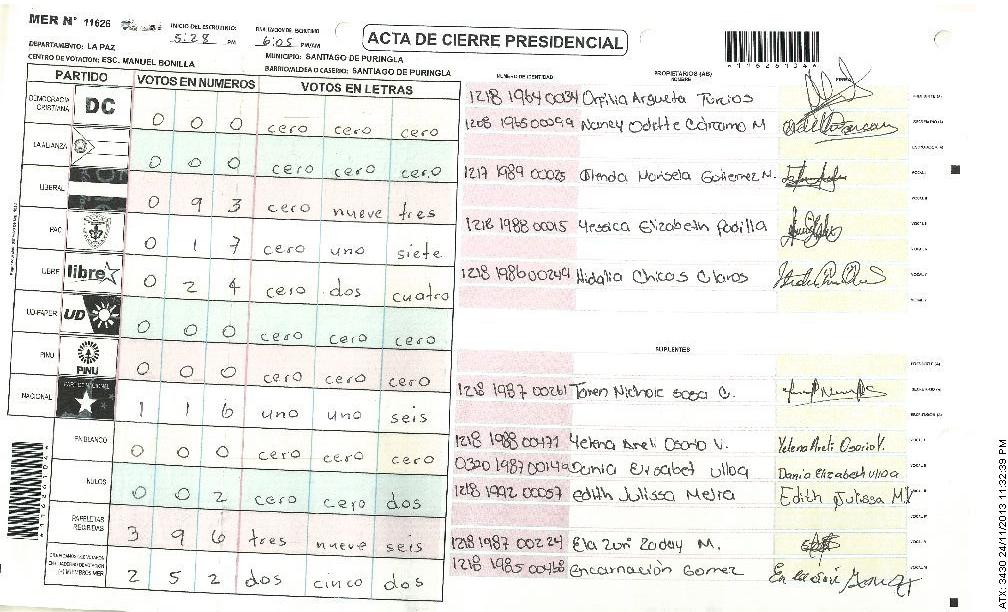 MER N° 11626
INICIO DEL ESCRUTINIO:
5:28 PM
6:05 PM/AM
ACTA DE CIERRE PRESIDENCIAL
DEPARTAMENTO: LA PAZ
MUNICIPIO: SANTIAGO DE PURINGLA
CENTRO DE VOTACION: ESC. MANUEL BONILLA
BARRIO/ALDEA O CASERIO: SANTIAGO DE PURINGLA
PARTIDO VOTOS EN NUMEROS VOTOS EN LETRAS
DEMOCRACIA CRISTIANA DC 0 0 0 cero cero cero
LA ALIANZA 0 0 0 cero cero cero
LIBERAL 0 9 3 cero nueve tres
PAC 0 1 7 cero uno siete
LIBRE libre 0 2 4 cero dos cuatro
UD-FAPER UD 0 0 0 cero cero cero
PINU PINU 0 0 0 cero cero cero
NACIONAL 1 1 6 uno uno seis
EN BLANCO 0 0 0 cero cero cero
NULOS 0 0 2 cero cero dos
PAPELETAS RECIBIDAS 3 9 6 tres nueve seis
2 5 2 dos cinco dos
NUMERO DE IDENTIDAD PROPIETARIOS (AS) NOMBRE FIRMA
1218 1964 00034 Orfilia Argueta Turcios
1208 1965 00099 Nancy Odette Cárcamo M
1217 1989 00025 Glenda Marisela Gutierrez M.
1218 1988 00015 Yessica Elizabeth Padilla
1218 1986 00249 Hidalia Chicas Claros
SUPLENTES
1218 1987 00261 Sosa C.
1218 1988 00471 Yelena Areli Osorio V. Yelena Areli Osorio V.
0320 1987 00149 Dania Elisabet Ulloa Dania Elizabeth Ulloa
1218 1992 00057 Edith Julissa Mejia Edith Julissa M
1218 1987 00224 M.
1218 1985 00458 Encarnación Gomez
ATX: 3430 24/11/2013 11:32:39 PM